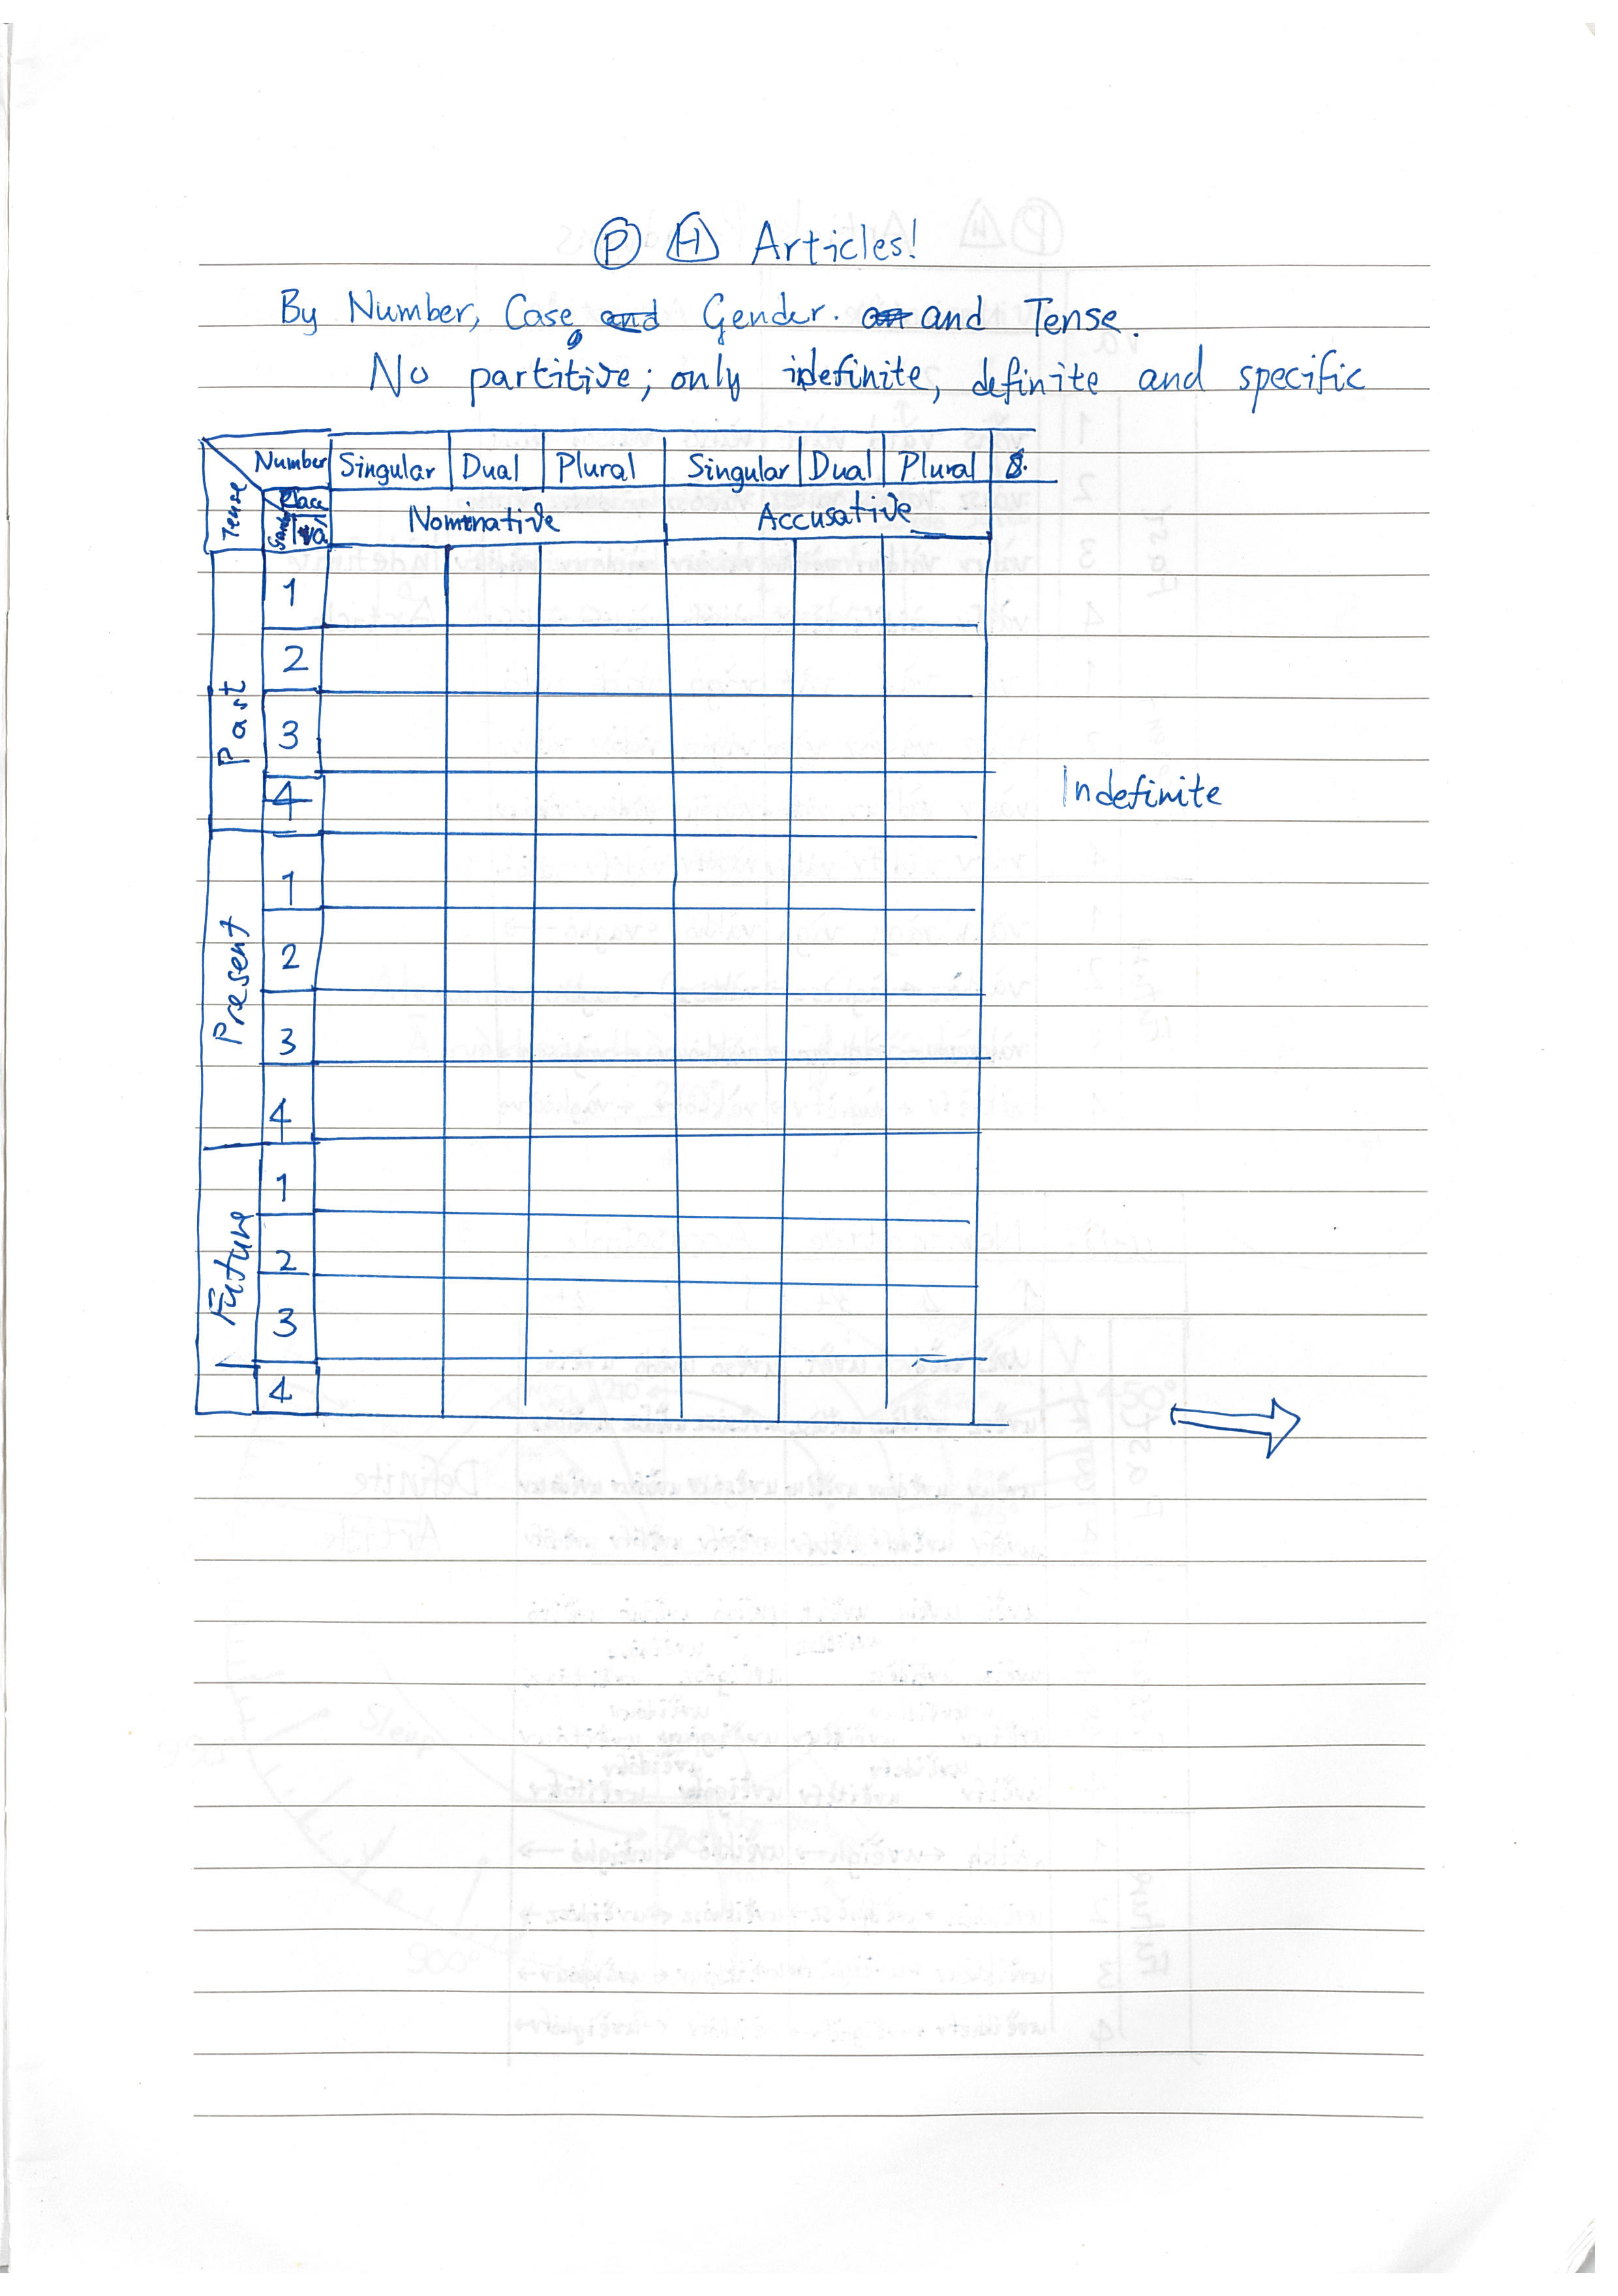 P H Articles!
By Number, Case, and Gender. an and Tense.
No partitive; only indefinite, definite and specific
Number Singular Dual Plural Singular Dual Plural S.
Tense Place
Gender Nominative Accusative
Past
1
2
3
4
Indefinite
Present
1
2
3
4
Future
1
2
3
4